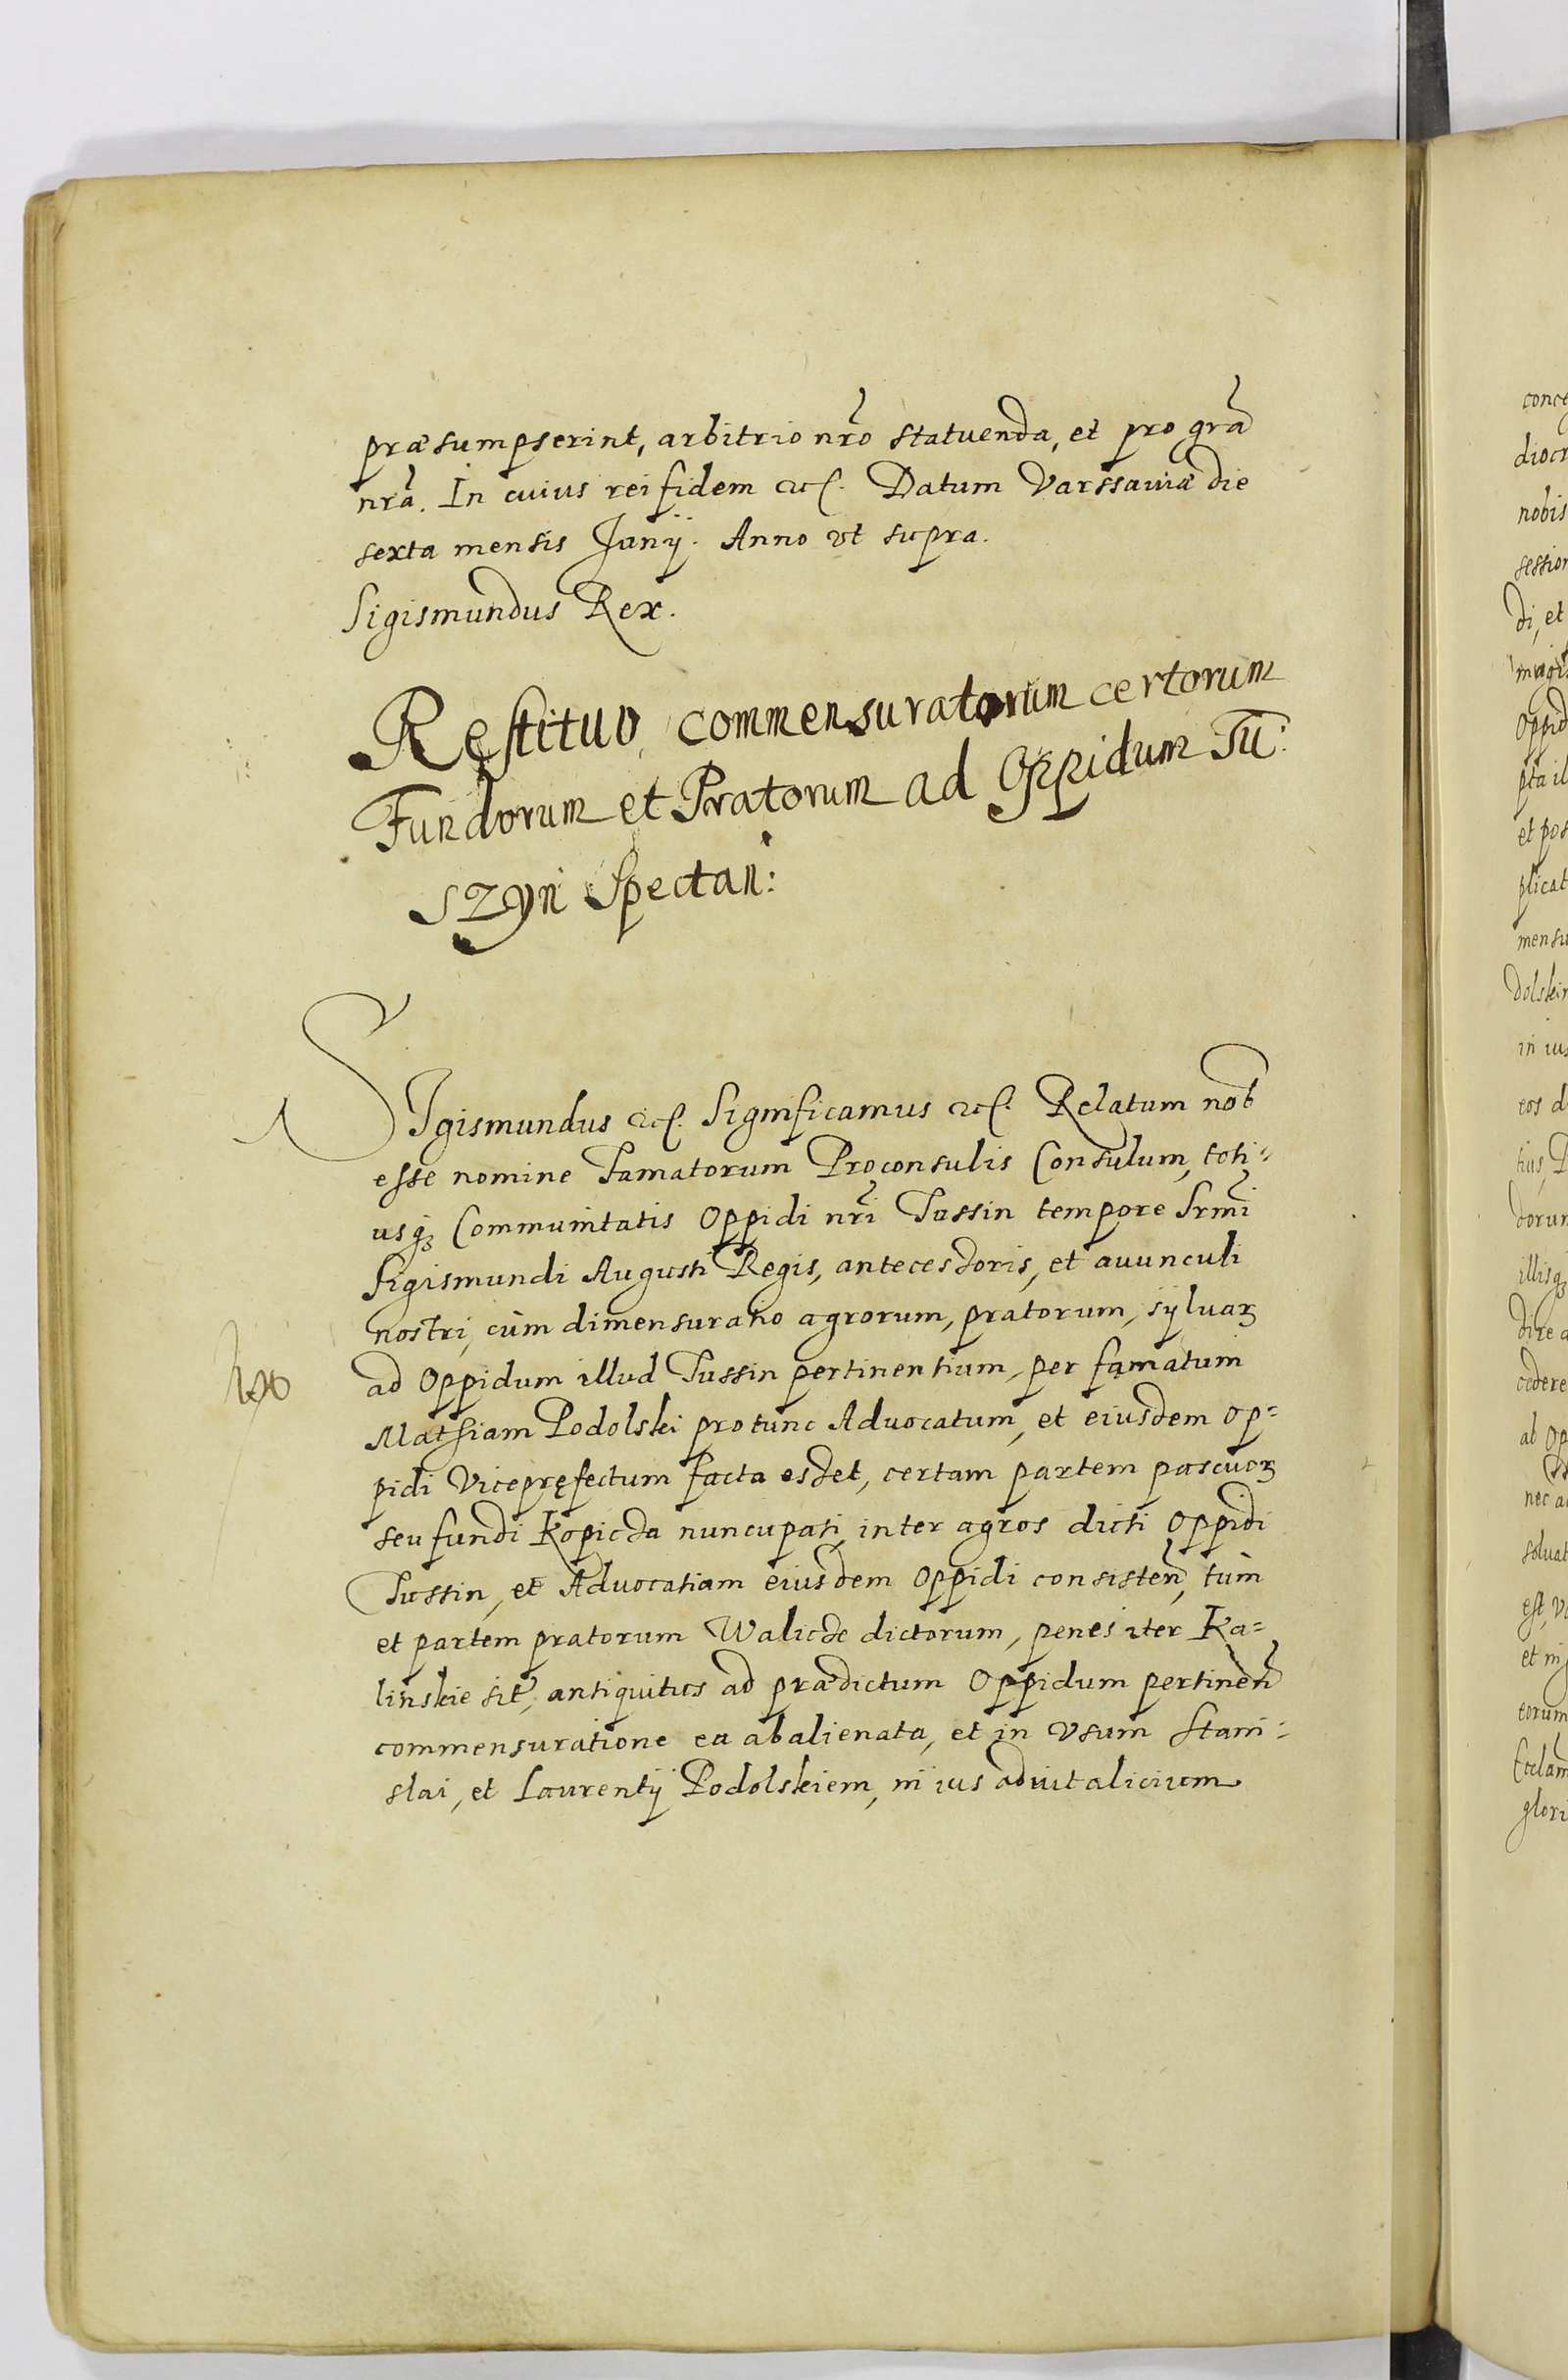 præsumpserint, arbitrio nr̃o statuenda, et pro gr̃a
nr̃a. In cuius rei fidem etc. Datum Varssauiæ die
sexta mensis Junij. Anno vt supra.
Sigismundus Rex.
Restituo commensuratorum certorum
Fundorum et Pratorum ad Oppidum Tu:
szyn Spectan:
SIgismundus etc. Significamus etc. Relatum nob
esse nomine Famatorum Proconsulis Consulum, toti-
usq3 Communitatis Oppidi nr̃i Tussin tempore Srm̃i
Sigismundi Augusti Regis, antecessoris, et auunculi
nostri, cùm dimensuratio agrorum, pratorum, syluaꝝ
ad Oppidum illud Tussin pertinentium, per famatum
Mathiam Podolski protunc Aduocatum, et eiusdem Op-
pidi Vicepręfectum facta esset, certam partem pascuoꝝ
seu fundi Kopicza nuncupati, inter agros dicti Oppidi
Tussin, et Aduocatiam eiusdem Oppidi consisteñ, tùm
et partem pratorum Walicze dictorum, penes iter Ka-
linskie sit̃, antiquitus ad prædictum Oppidum pertineñ
commensuratione ea abalienata, et in vsum Stani-
slai, et Laurentij Podolskiem, in ius aduitalicium
conce
diocr
nobis
session
di, et
magis
Oppid
pta il
et pos
plicat
mensu
dolskin
in ius
eos d
tius, P
dorum
illisq3
dire a
cedere
ab Op
nec a
soluat
est, vo
et in
eorum
Ecclam
glori